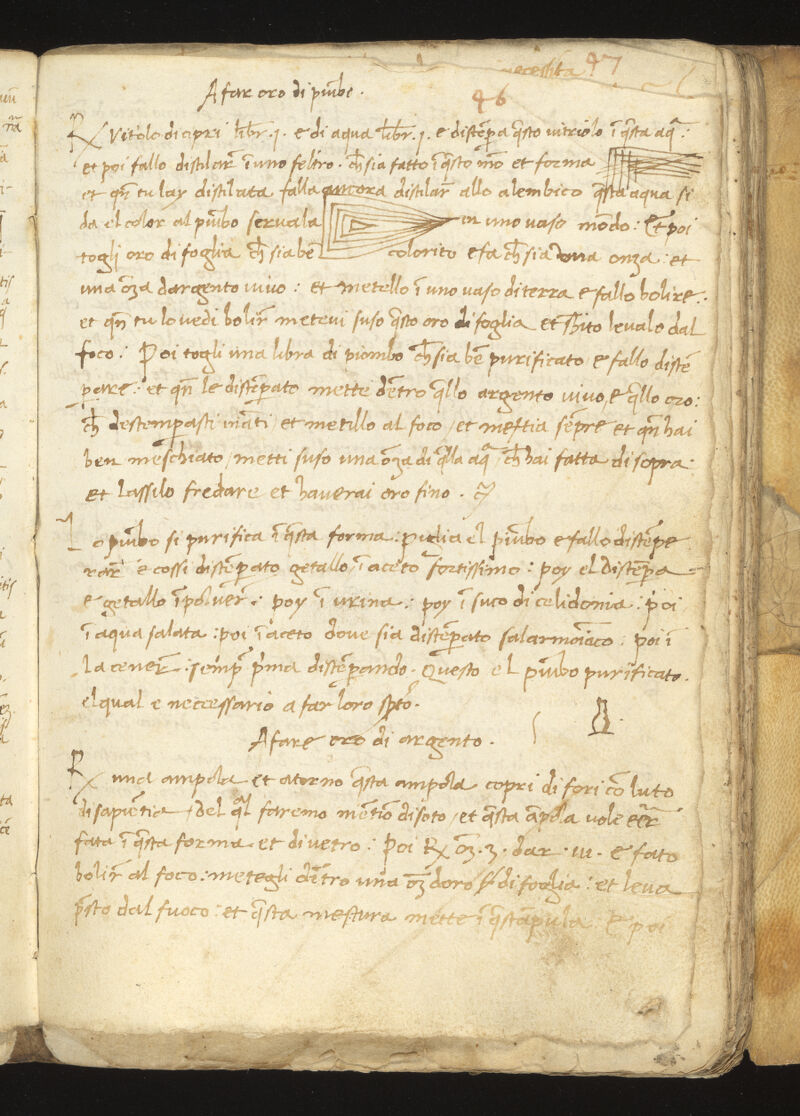 necessita 47
46
A far oro di piu͂bo.
℞ Vitrolo di cipri libr. j. e di aqua libr. j. e diste͂pera q̃sto vitriolo i͂ q̃sta aq̃:
et poi fallo distilar̃ i͂ uno feltro. ch̃ sia fatto i͂ q̃sto mõ et forma
et qñ tu lay distilata falla ancora distilar̃ allo alembico q̃sta aqua si
da el color al piu͂bo servala in uno vaso mõdo: Et poi
togli oro di foglia ch̃ sia be͂ colorito e fa ch̃ sia una onza: et
una õza dargento vivo: et metello i͂ uno vaso di terra e fallo bolire.
et qñ tu lo vedi bolir̃ metevi suso q̃sto oro di foglia et s͂bito levalo dal
foco: Poi togli una libra di piombo ch̃ sia be͂ purificato e fallo diste͂
pare: et qñ le diste͂perato mette de͂tro q̃llo argento vivo, e q̃llo oro:
ch̃ destemperasti ina͂ti, et metillo al foco, et mestia se͂pre et qñ hai
ben meschiato, metti suso una õza di q̃lla aq̃, ch̃ hai fatta di sopra:
et lassilo fredare et haverai oro fino.
Lo piu͂bo si purifica i͂ q̃sta forma: piglia el piu͂bo e fallo diste͂pe
rar̃ e cossi diste͂perato getallo, i͂ aceto fortissimo: poy el diste͂pera
e getallo i͂ polver̃: poy i͂ urina: poy i͂ suco di celidonia: poi
i͂ aqua salata: poi i͂ aceto dove sia diste͂perato salarmoniaco: poi i͂
la cener̃. semp̃ p̃ma diste͂perando. Questo e l piu͂bo purificato.
el qual e neccessario a far loro sp̃to.
A fare oro di argento.
℞ una ampola et atorno q̃sta ampola copri di fori cõ luto
di sapie͂tia, del q̃l faremo me͂tiõ disoto, et q̃sta a͂pola vole eer̃
fata i͂ q̃sta forma et di vetro: Poi ℞ õz. 3. dar. vi. e fato
bolir̃ al foco: metegli de͂tro una õz doro di foglia: et leva
p̃sto dal fuoco: et q̃sta mestura mette i͂ q̃sta͂pula e poi